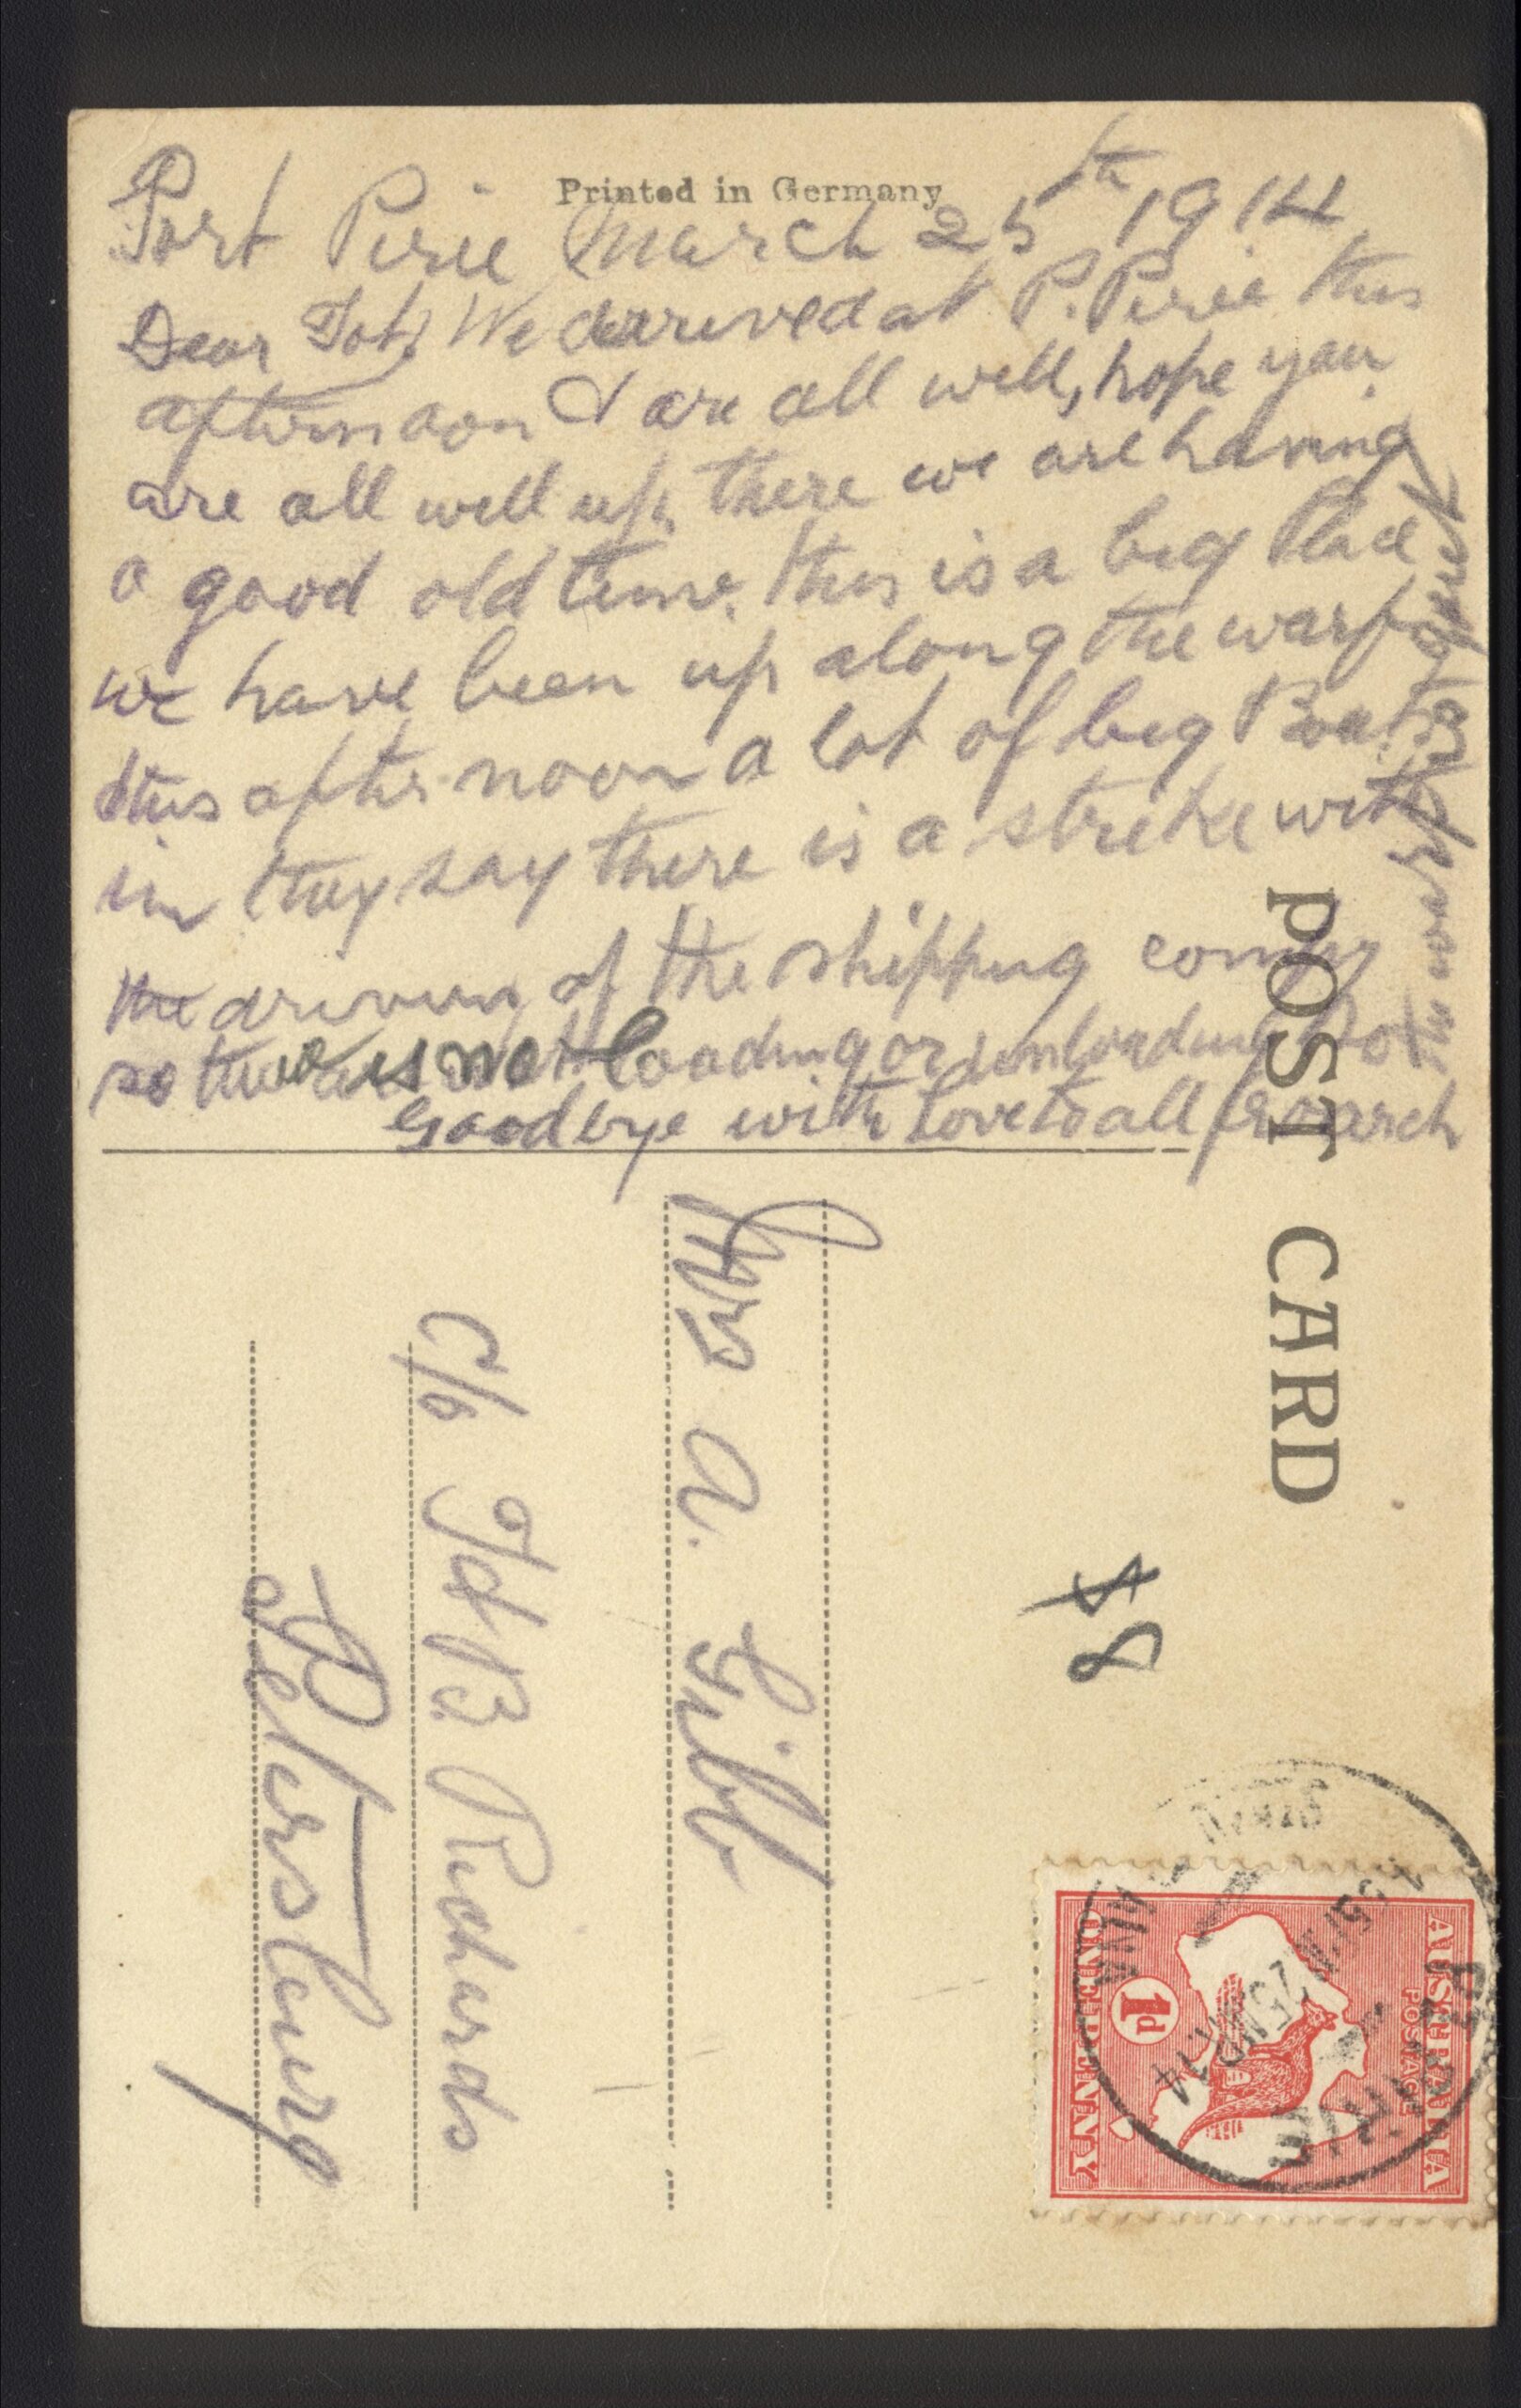 Printed in Germany
Port Pirie March 25th 1914
Dear Tot, We arrived at P. Pirie this
afternoon & are all well, hope you
are all well up there we are having
a good old time. this is a big Place
we have been up along the warf
this afternoon a lot of big Boats
in they say there is a strike with
the of the shipping
so there is no loading or unloading
Good bye with Love to all from
POST CARD
8
Mrs A. Gibb
C/o T & B Richards
Petersburg
AUSTRALIA
POSTAGE
1d
ONE PENNY
PT PIRIE
25 MR 14